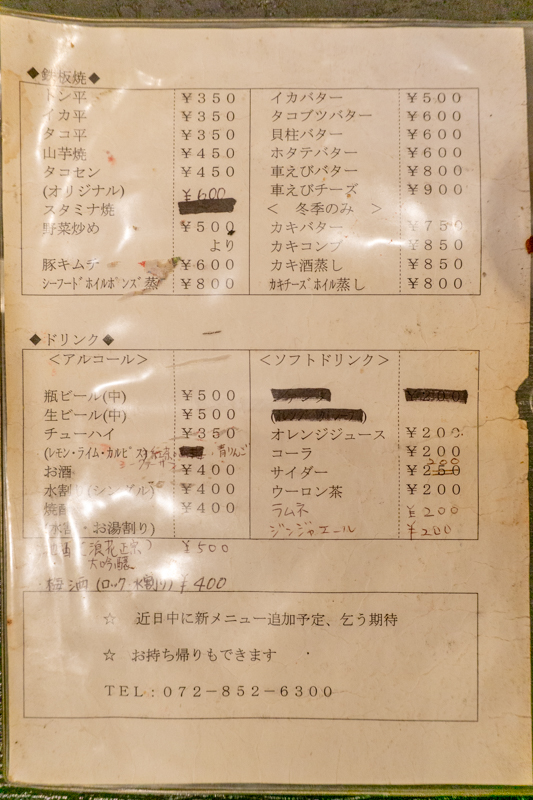 ◆鉄板焼◆
トン平 ￥３５０
イカ平 ￥３５０
タコ平 ￥３５０
山芋焼 ￥４５０
タコセン ￥４５０
(オリジナル) ￥600
スタミナ焼
野菜炒め ￥５００
より
豚キムチ ￥６００
ｼｰﾌｰﾄﾞﾎｲﾙﾎﾟﾝｽﾞ蒸 ￥８００
イカバター ￥５００
タコブツバター ￥６００
貝柱バター ￥６００
ホタテバター ￥６００
車えびバター ￥８００
車えびチーズ ￥９００
＜ 冬季のみ ＞
カキバター ￥７５０
カキコンブ ￥８５０
カキ酒蒸し ￥８５０
ｶｷﾁｰｽﾞﾎｲﾙ蒸し ￥８００
◆ドリンク◆
＜アルコール＞
瓶ビール(中) ￥５００
生ビール(中) ￥５００
チューハイ ￥３５０
(レモン・ライム・カルピス 青りんご
お酒 ￥４００
水割り(シングル) ￥４００
焼酎 ￥４００
(水割・お湯割り)
浪花正宗 ￥500
大吟醸
・梅酒 (ロック・水割り) ￥400
＜ソフトドリンク＞
オレンジジュース ￥２００
コーラ ￥２００
サイダー 200 ￥２５０
ウーロン茶 ￥２００
ラムネ ￥200
ジンジャエール ￥200
☆ 近日中に新メニュー追加予定、乞う期待
☆ お持ち帰りもできます
ＴＥＬ：０７２－８５２－６３００